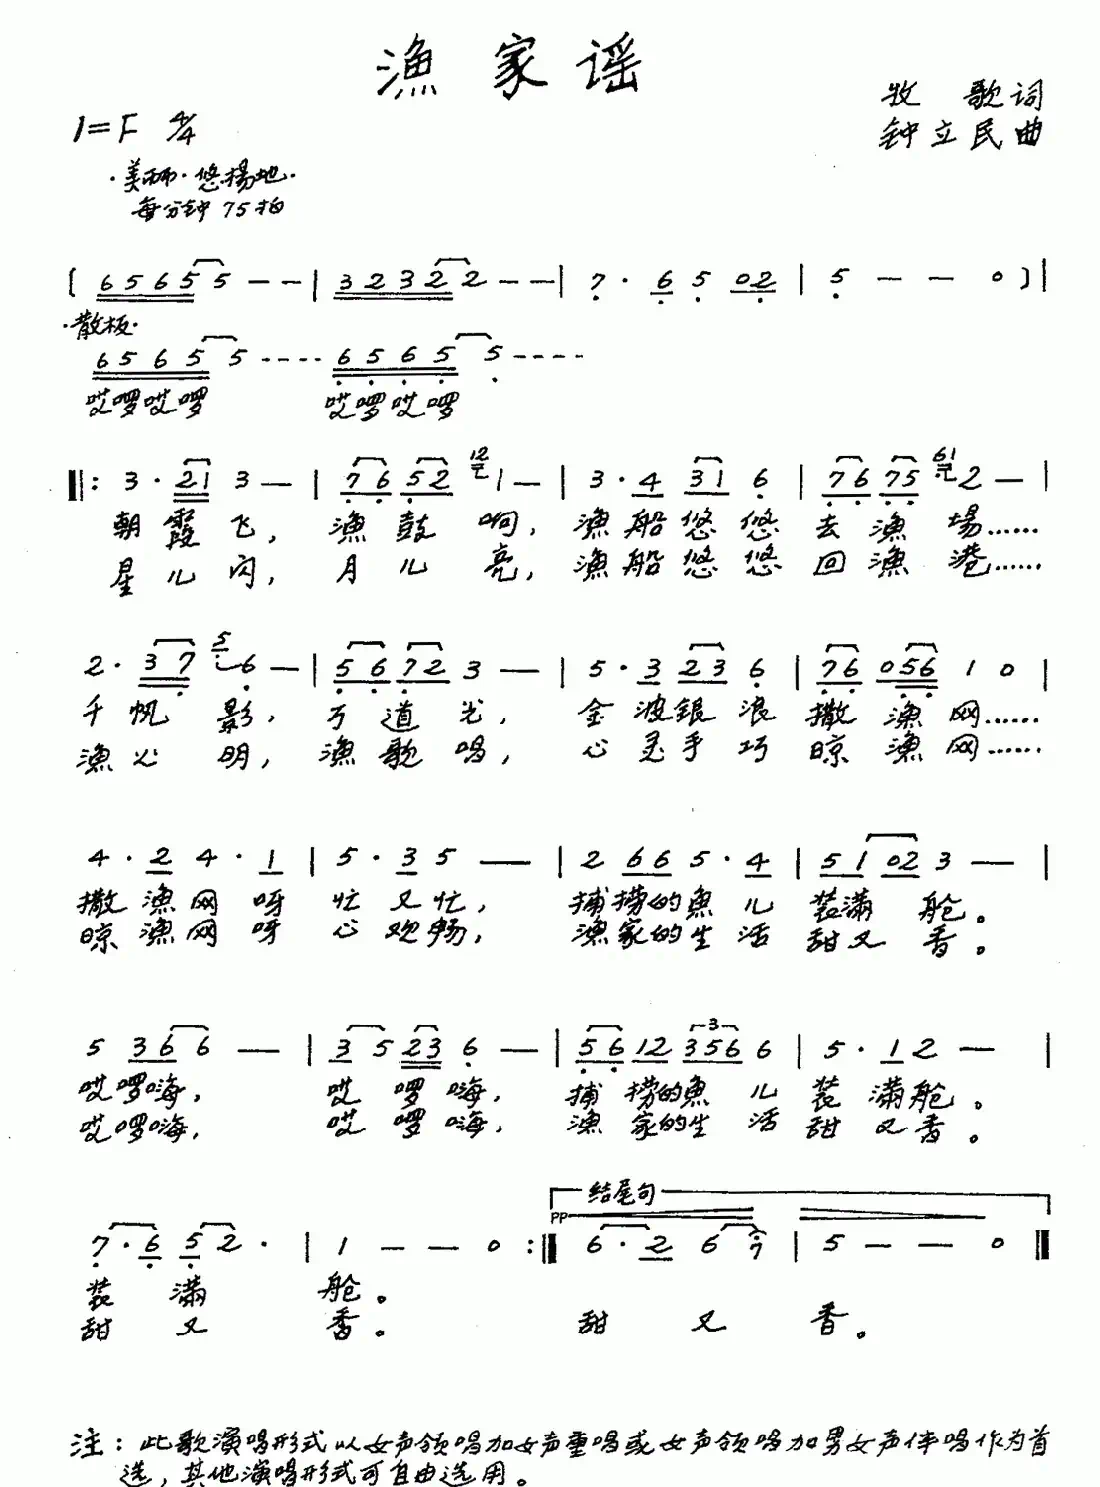 漁家谣
牧 歌词
1=F 4/4
钟立民曲
·美而·悠揚地·
每分钟 75拍
[ 6 5 6 5 5 - - | 3 2 3 2 2 - - | 7 · 6 5 02 | 5 - - 0 ] |
·散板·
6 5 6 5 5 - - - - 6 5 6 5 5 - - - -
哎啰哎啰 哎啰哎啰
12 61
‖: 3 · 21 3 — | 76 52 1 — | 3 · 4 31 6 | 76 75 2 — |
朝霞飞, 漁鼓响, 漁船悠悠去漁場……
星儿闪, 月儿亮, 漁船悠悠回漁港……
5
2 · 37 6 — | 56 72 3 — | 5 · 3 23 6 | 76 056 1 0 |
千帆影, 万道光, 金波銀浪撒漁网……
漁火明, 漁歌唱, 心灵手巧晾漁网……
4 · 2 4 · 1 | 5 · 3 5 — | 2 66 5 · 4 | 51 02 3 — |
撒漁网呀忙又忙, 捕捞的魚儿装满舱。
晾漁网呀心欢畅, 漁家的生活甜又香。
3
5 36 6 — | 3 5 23 6 — | 56 12 356 6 | 5 · 1 2 — |
哎啰嗨, 哎啰嗨, 捕捞的魚儿装满舱。
哎啰嗨, 哎啰嗨, 漁家的生活甜又香。
结尾句
PP
7 · 6 5 2 · | 1 - - 0 :‖ 6 · 2 6 7 | 5 - - 0 ‖
装满舱。
甜又香。 甜又香。
注：此歌演唱形式以女声领唱加女声重唱或女声领唱加男女声伴唱作为首
选，其他演唱形式可自由选用。